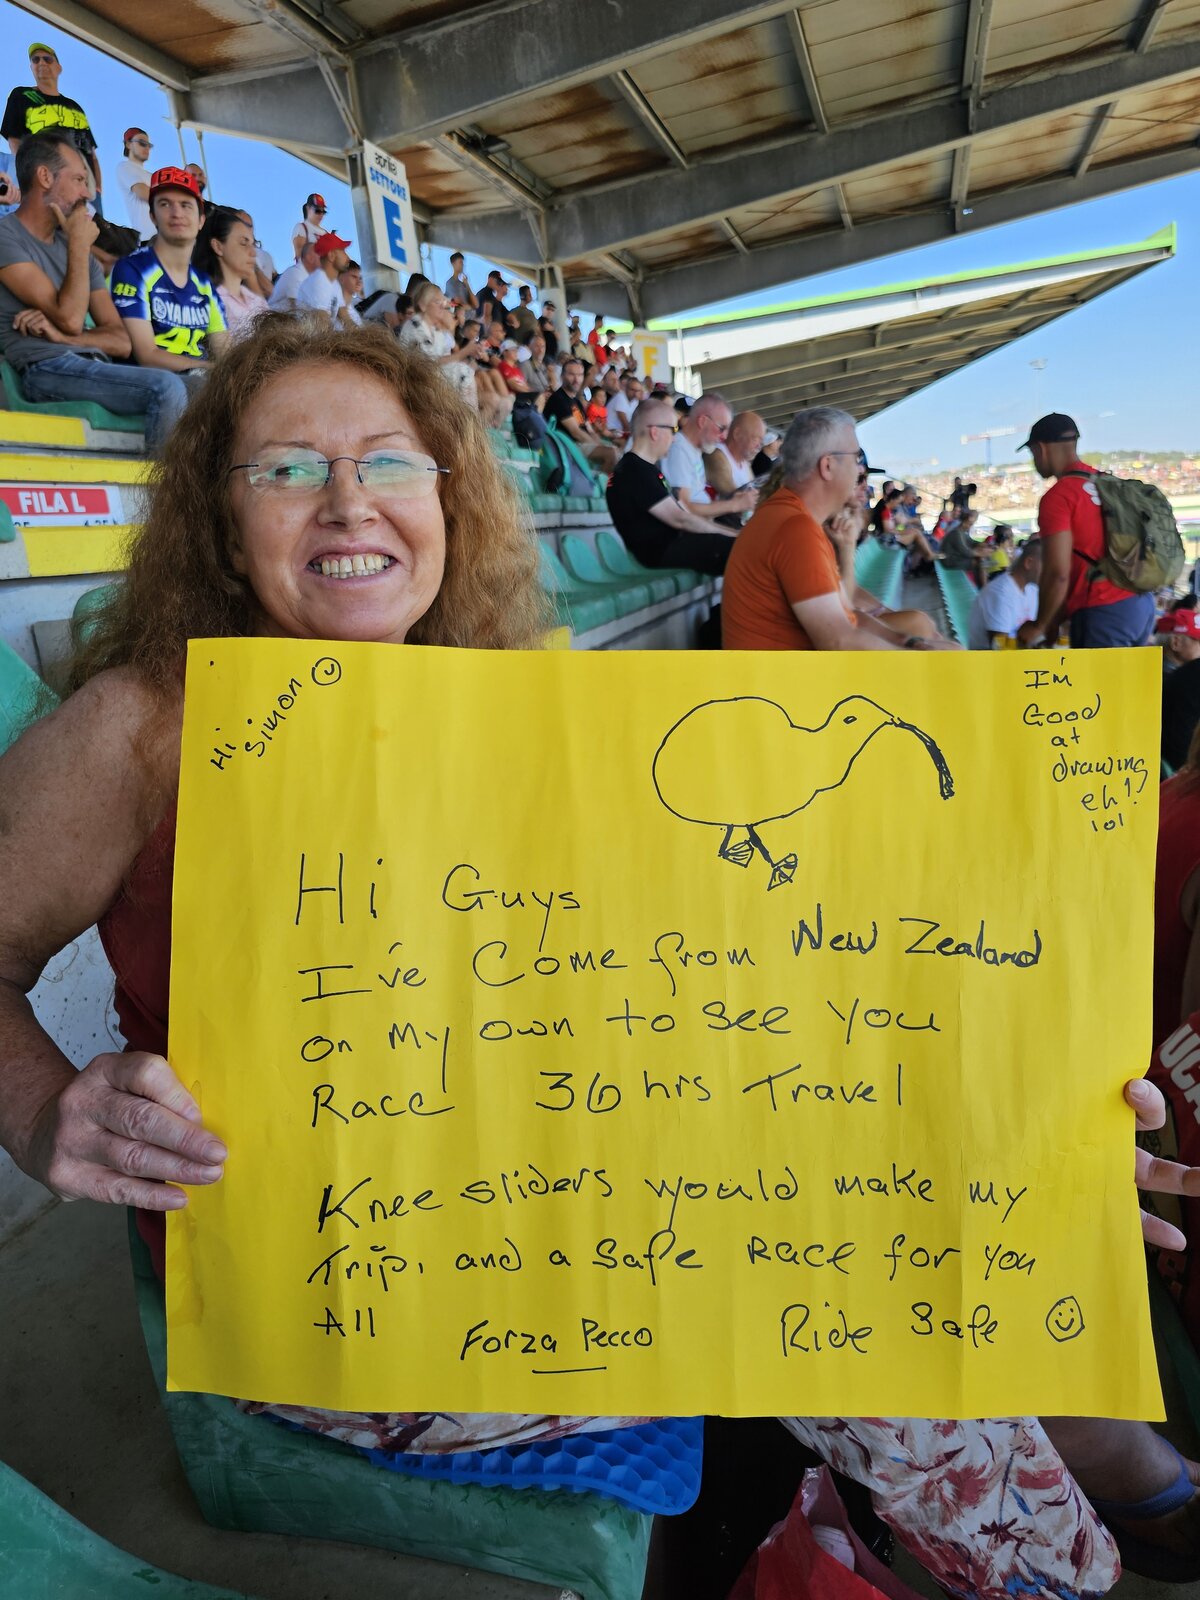 aprilia
SETTORE
E
F
63
46
YAMAHA
46
FILA L
Hi
Simon
I'm
Good
at
drawing
eh!
lol
Hi Guys
I've Come from New Zealand
on My own to see You
Race 36 hrs Travel
Knee sliders would make my
Trip, and a Safe Race for you
All
Forza Pecco
Ride Safe